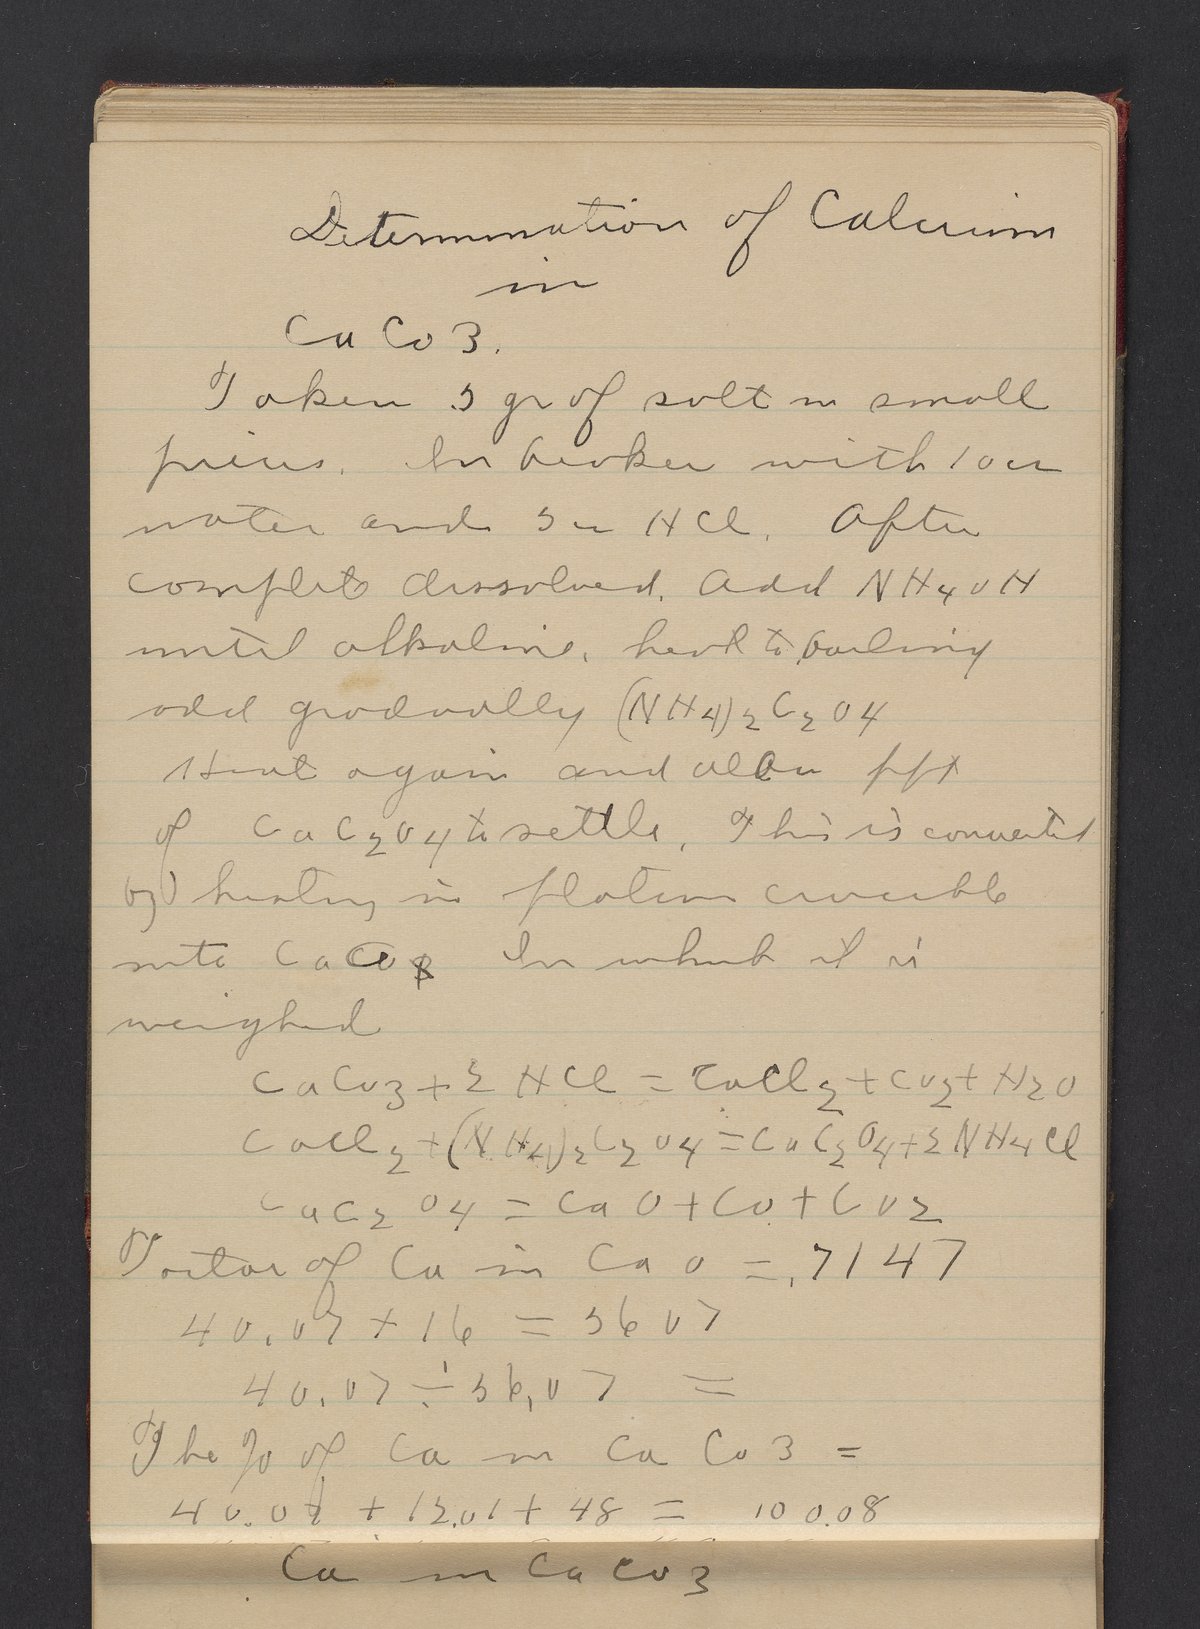 Determination of Calcium
in
CaCo3.
Taken .5 gr of salt in small
pieces. In beaker with 10 cc
water and 5 cc HCl. After
complete dissolved. add NH4OH
until alkaline. heat to boiling
add gradually (NH4)2C2O4
Heat again and allow ppt
of CaC2O4 to settle. This is converted
by heating in platinum crucible
into CaO In which it is
weighed
CaCo3 + 2 HCl = CaCl2 + Co2 + H2O
CaCl2 + (NH4)2C2O4 = CaC2O4 + 2NH4Cl
CaC2O4 = CaO + Co + Co2
Factor of Ca in CaO = .7147
40.07 + 16 = 5607
40.07 ÷ 56.07 =
The % of Ca in CaCo3 =
40.07 + 12.01 + 48 = 100.08
Ca in CaCo3